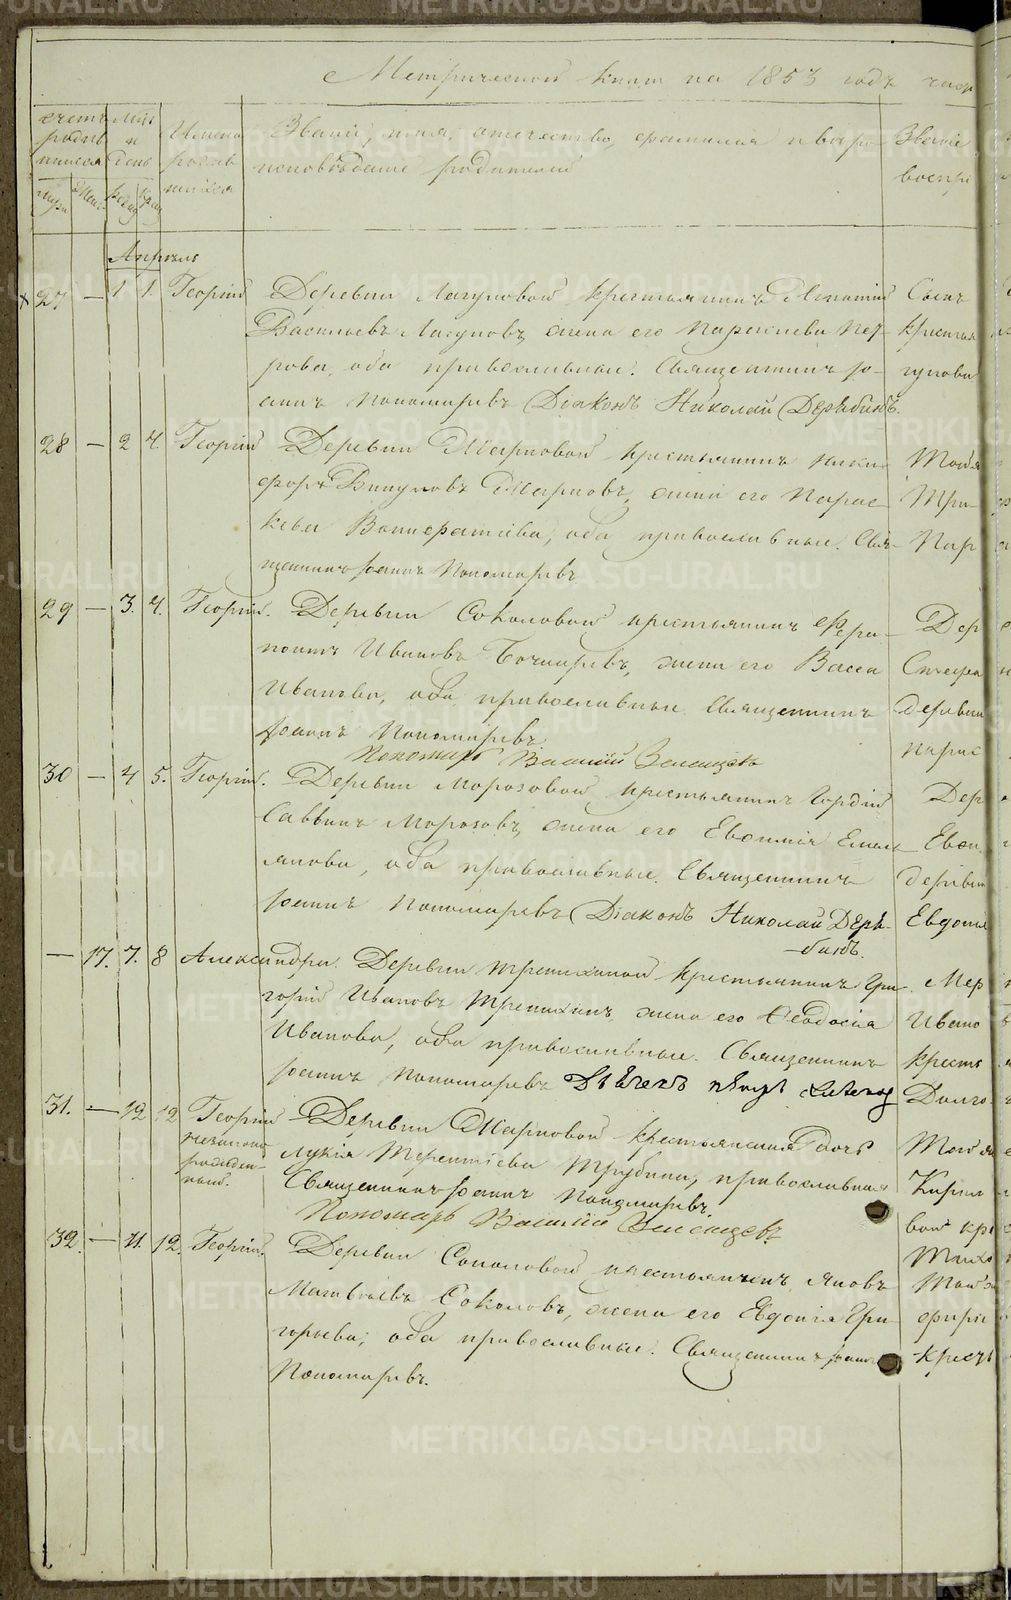 Метрической книги на 1853 годъ част
счетъ родив шихся
Мць и день
Имена родив шихся
Званіе, имя, отечество, фамилія и веро-
исповѣданіе родителей
Званіе
воспрі
муж
жен
рожд
крещ
Апрѣль
27 — 1 1. Георгій Деревни Лагуновой крестьянинъ Игнатій
Васильевъ Лагуновъ, жена его Параскева Пет-
рова, оба православные. Священникъ Іо-
аннъ Пономаревъ Діаконъ Николай Дерябинъ.
Сылъ
крестья
гунова
28 — 2 4. Георгій Деревни Марковой крестьянинъ Ники-
форъ Викуловъ Марковъ, жена его Парас-
кева Панкратіева, оба православные. Свя-
щенникъ Іоаннъ Пономаревъ
Тойже
Три-
Пар
29 — 3. 4. Георгій. Деревни Соколовой крестьянинъ Фера-
понтъ Ивановъ Бочкаревъ, жена его Васса
Иванова, оба православные Священникъ
Іоаннъ Пономаревъ
Пономарь Василій Зеленцевъ
Дер
Стефа
деревни
Парас
30 — 4 5. Георгій. Деревни Морозовой крестьянинъ Гордій
Саввинъ Морозовъ, жена его Евфимія Емель-
янова, оба православные. Священникъ
Іоаннъ Пономаревъ Діаконъ Николай Деря-
бинъ.
Дер
Евои
деревни
Евдоки
— 17. 7. 8 Александра. Деревни Трепихиной крестьянинъ Гри-
горій Ивановъ Трепихинъ, жена его Феодосія
Иванова, оба православные. Священникъ
Іоаннъ Пономаревъ
Ивано
кресть
Долго-
31. — 12 12 Георгій незаконно рожден- ный. Деревни Марковой крестьянская дочь
Лукія Терентіева Трубина, православная
Священникъ Іоаннъ Пономаревъ.
Пономарь Василій Зеленцевъ
Тойже
Кирил
вой кре
32. — 11. 12. Георгій. Деревни Соколовой крестьянинъ Яковъ
Матвѣевъ Соколовъ, жена его Евдокія Гри-
горьева, оба православные. Священникъ Іоаннъ
Пономаревъ.
Тойже
крест
METRIKI.GASO-URAL.RU